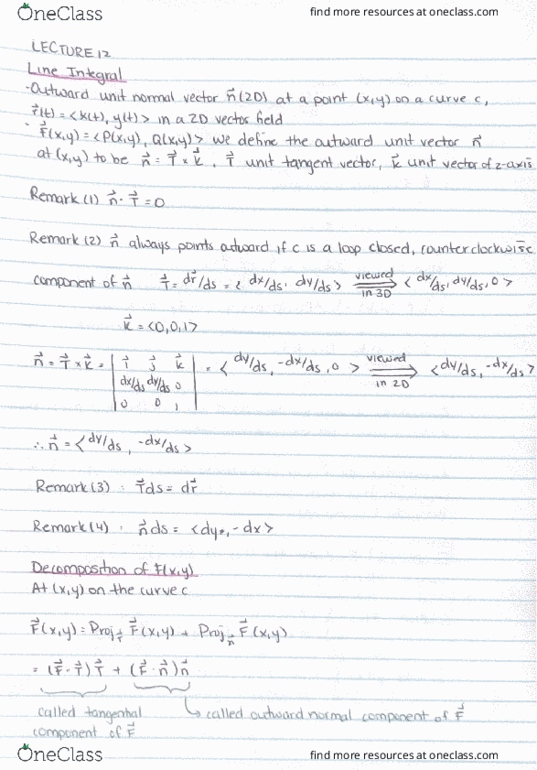 OneClass find more resources at oneclass.com
LECTURE 12
Line Integral
-Outward unit normal vector n⃗ (2D) at a point (x,y) on a curve c,
r⃗(t) = <x(t), y(t)> in a 2D vector field
· F⃗(x,y) = <P(x,y), Q(x,y)> we define the outward unit vector n⃗
at (x,y) to be n⃗ = T⃗ × k⃗, T⃗ unit tangent vector, k⃗ unit vector of z-axis
Remark (1) n⃗ · T⃗ = 0
Remark (2) n⃗ always points outward if c is a loop closed, counterclockwise
component of n⃗ T⃗ = dr⃗/ds = < dx/ds, dy/ds > viewed in 3D ⟹ < dx/ds, dy/ds, 0 >
k⃗ = <0,0,1>
n⃗ = T⃗ × k⃗ = | i⃗ j⃗ k⃗ | = < dy/ds, -dx/ds, 0 > viewed in 2D ⟹ < dy/ds, -dx/ds >
dx/ds dy/ds 0
0 0 1
∴ n⃗ = < dy/ds, -dx/ds >
Remark (3) : T⃗ds = dr⃗
Remark (4) : n⃗ ds = <dy, -dx>
Decomposition of F(x,y)
At (x,y) on the curve c
F⃗(x,y) = Proj_T⃗ F⃗(x,y) + Proj_n⃗ F⃗(x,y)
= (F⃗ · T⃗) T⃗ + (F⃗ · n⃗) n⃗
called tangential ↳ called outward normal component of F⃗
component of F⃗
OneClass find more resources at oneclass.com